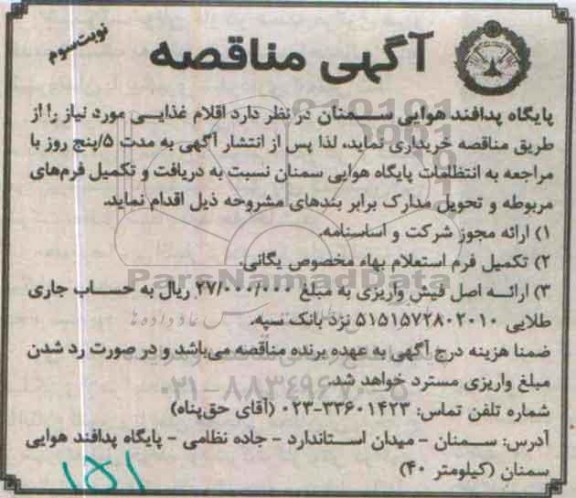 نوبت سوم
آگهی مناقصه
پایگاه پدافند هوایی سمنان در نظر دارد اقلام غذایی مورد نیاز را از
طریق مناقصه خریداری نماید، لذا پس از انتشار آگهی به مدت ۵/پنج روز با
مراجعه به انتظامات پایگاه هوایی سمنان نسبت به دریافت و تکمیل فرم‌های
مربوطه و تحویل مدارک برابر بندهای مشروحه ذیل اقدام نماید.
۱) ارائه مجوز شرکت و اساسنامه.
۲) تکمیل فرم استعلام بهاء مخصوص یگانی.
ParsNamadData
۳) ارائه اصل فیش واریزی به مبلغ ۲۷/۰۰۰/۰۰۰ ریال به حساب جاری
طلایی ۵۱۵۱۵۷۲۸۰۲۰۱۰ نزد بانک سپه.
ضمنا هزینه درج آگهی به عهده برنده مناقصه می‌باشد و در صورت رد شدن
مبلغ واریزی مسترد خواهد شد.
شماره تلفن تماس: ۳۳۶۰۱۴۲۳-۰۲۳ (آقای حق‌پناه)
آدرس: سمنان - میدان استاندارد - جاده نظامی - پایگاه پدافند هوایی
سمنان (کیلومتر ۴۰)
۱۵۱